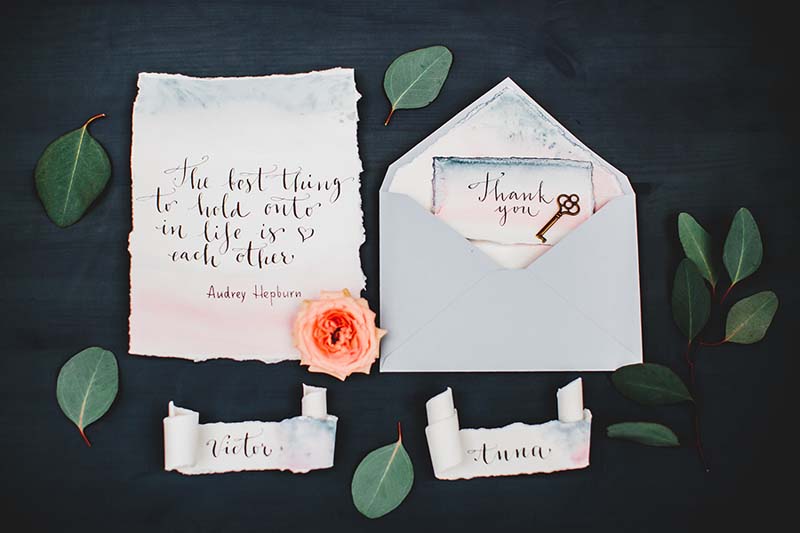 The best thing
to hold onto
in life is
each other
Audrey Hepburn
Thank
you
Victor
Anna